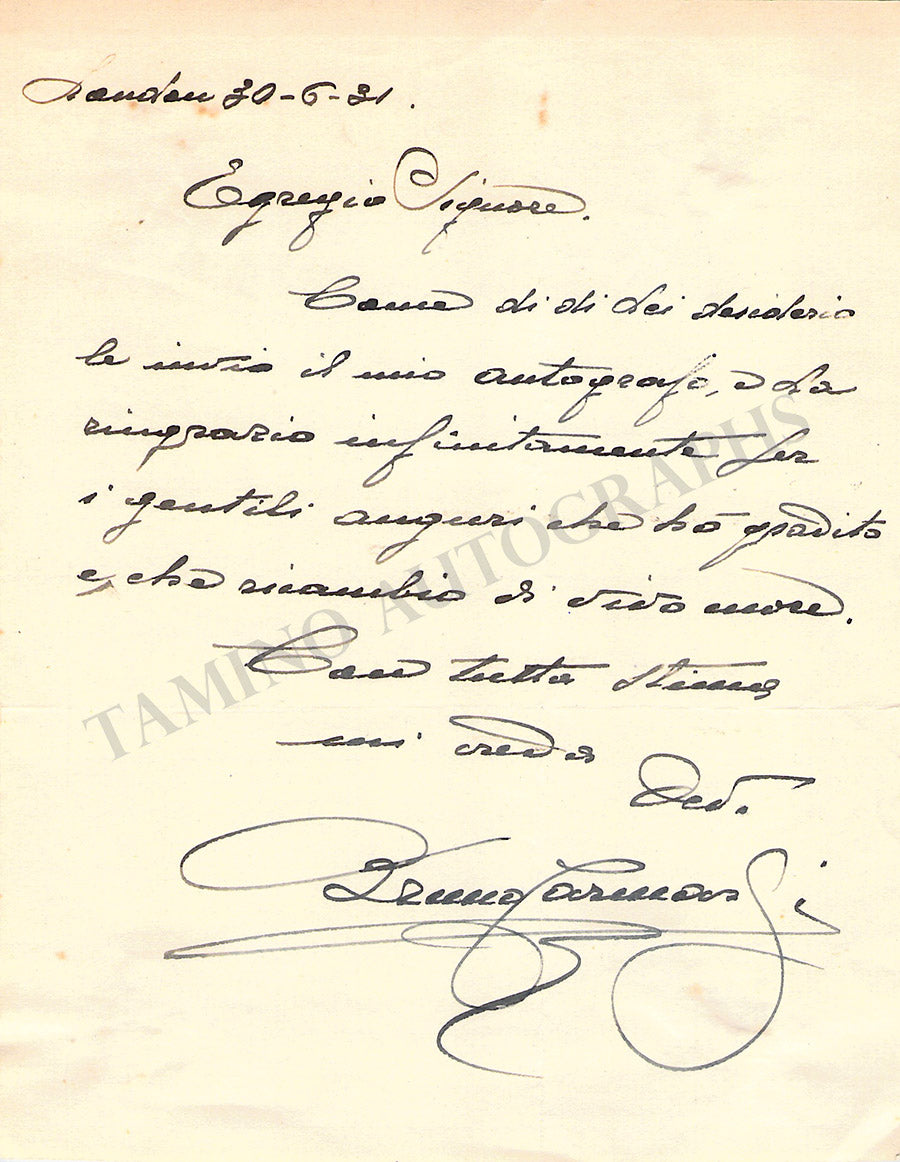 London 30-6-31.
Egregio Signore.
Come di di Lei desiderio
le invio il mio autografo, e La
ringrazio infinitamente per
i gentili auguri che hò gradito
e, che ricambio di vivo cuore.
Con tutta stima
mi creda
Dev.
Bruno Carmassi
TAMINO AUTOGRAPHS